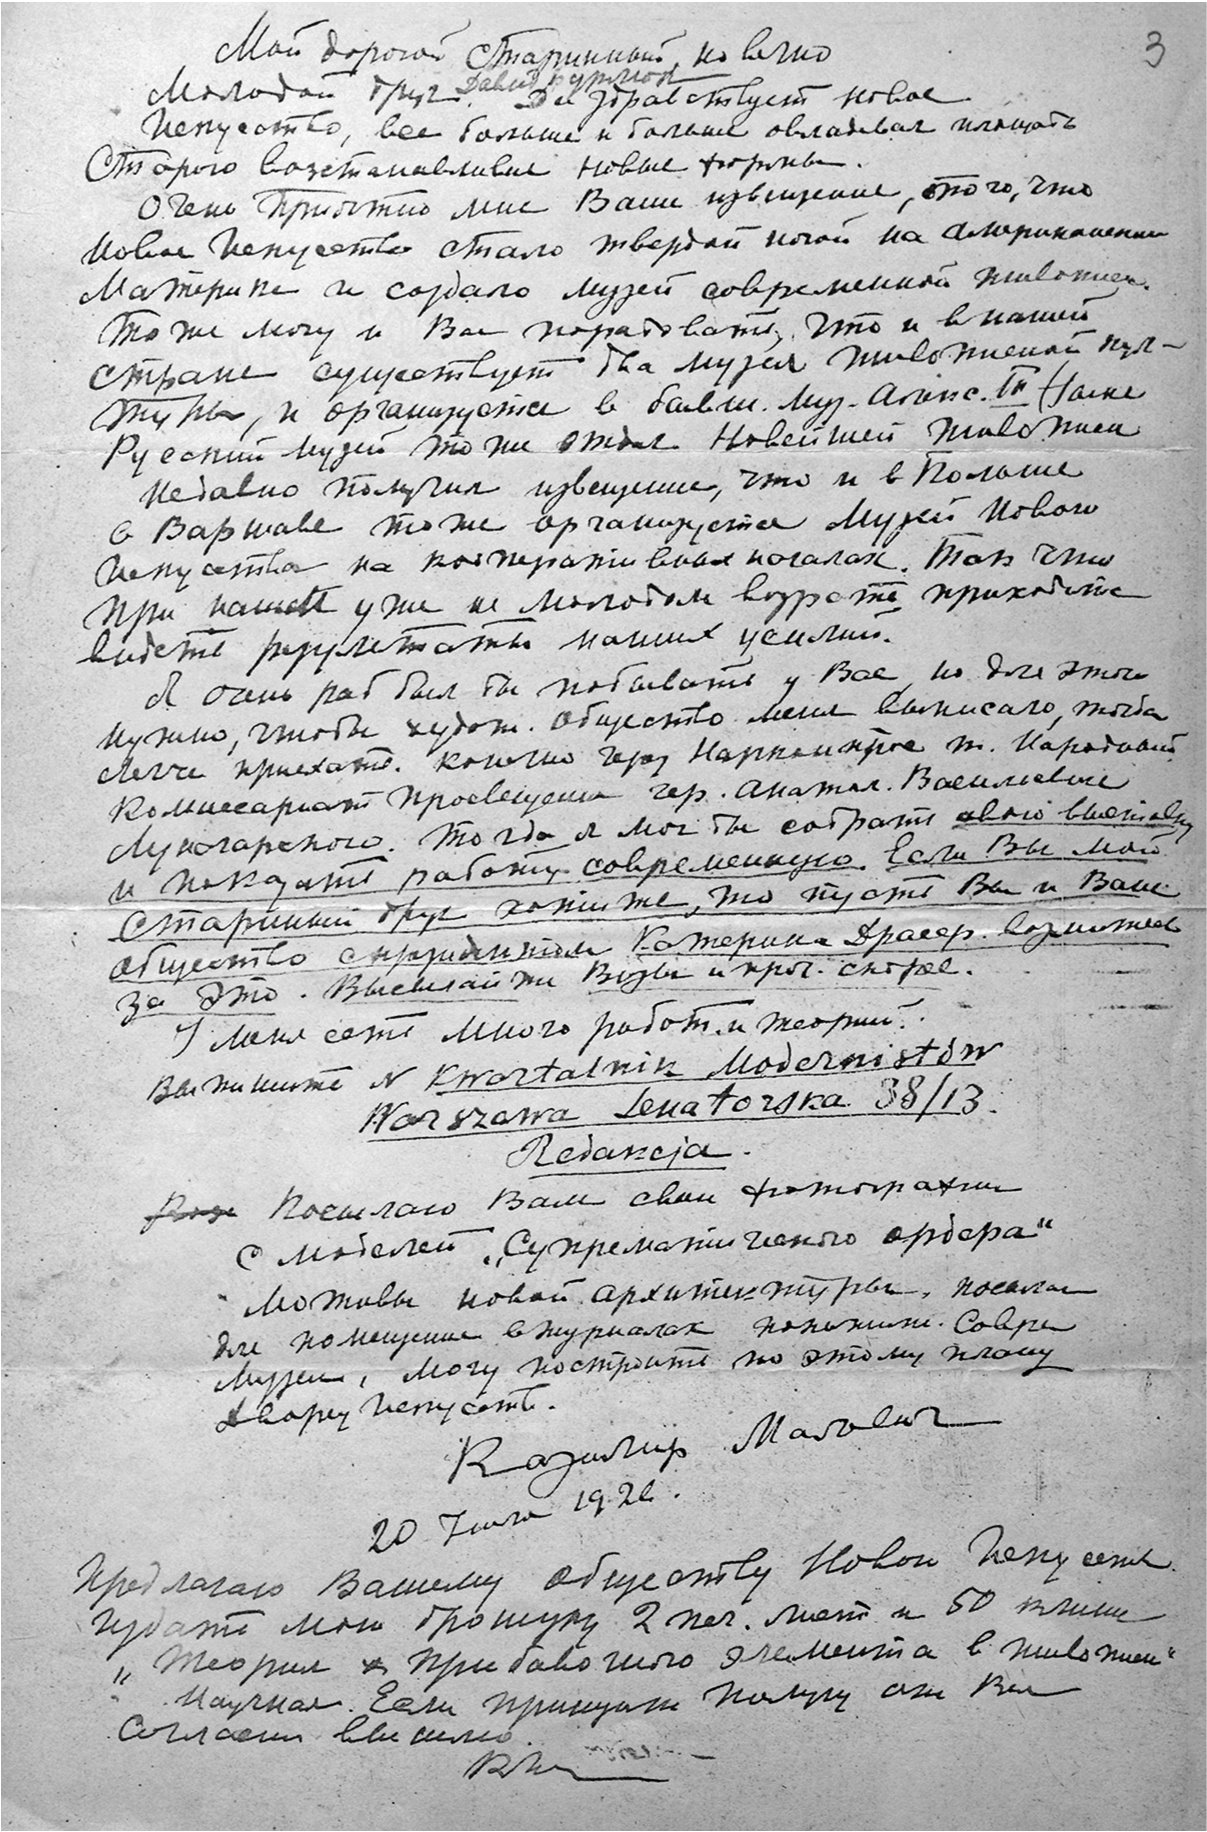 3
Мой дорогой старинный, но вечно
молодой друг Давид Бурлюк. Да здравствует новое
Искусство, все больше и больше овладевая площадь
Старого возстанавливая новые формы.
Очень приятно мне Ваше извещение, что
новое Искусство стало твердой ногой на американском
Материке и создало музей современной живописи.
Тоже могу и Вас порадовать, что и в нашей
стране существует два музея живописной куль-
туры, и организуется в бывш. муз. Алекс. III
Русский музей тоже отдел новейшей живописи
Недавно получил извещение, что и в Польше
в Варшаве тоже организуется музей Нового
Искусства на кооперативных началах. Так что
при нашем уже не молодом возрасте приходится
видеть результаты наших усилий.
Я очень рад был бы побывать у Вас, но для этого
нужно, чтобы худож. общество меня выписало, тогда
легче приехать. конечно через Наркомпрос т. Народный
Комиссариат Просвещения чер. Анатол. Васильевича
Луначарского. Тогда я мог бы собрать свою выставку
и показать работу современную. Если Вы мой
старинный друг хотите, то пусть Вы и Ваше
общество с президентом Катерина Драсер. возьмитесь
за это. Высылайте Визы и проч. скорее.
У меня есть много работ и теорий.
Выпишите N Kwartalnik Modernistów
Warszawa Senatorska 38/13.
Redakcja.
Посылаю Вам свои фотографии
с моделей „Супрематического ордера“
Мотивы новой архитектуры, посылаю
для помещения в журналах Совре
музеи, могу построить по этому плану
дворец Искусств.
Казимир Малевич
20 Июля 1926.
Предлагаю Вашему обществу Новои Искусств
издать мою брошуру 2 печ. лист и 50 клише
„Теория прибавочного элемента в живописи“
Научная. Если принципе получу от Вас
согласие вышлю.
КМ